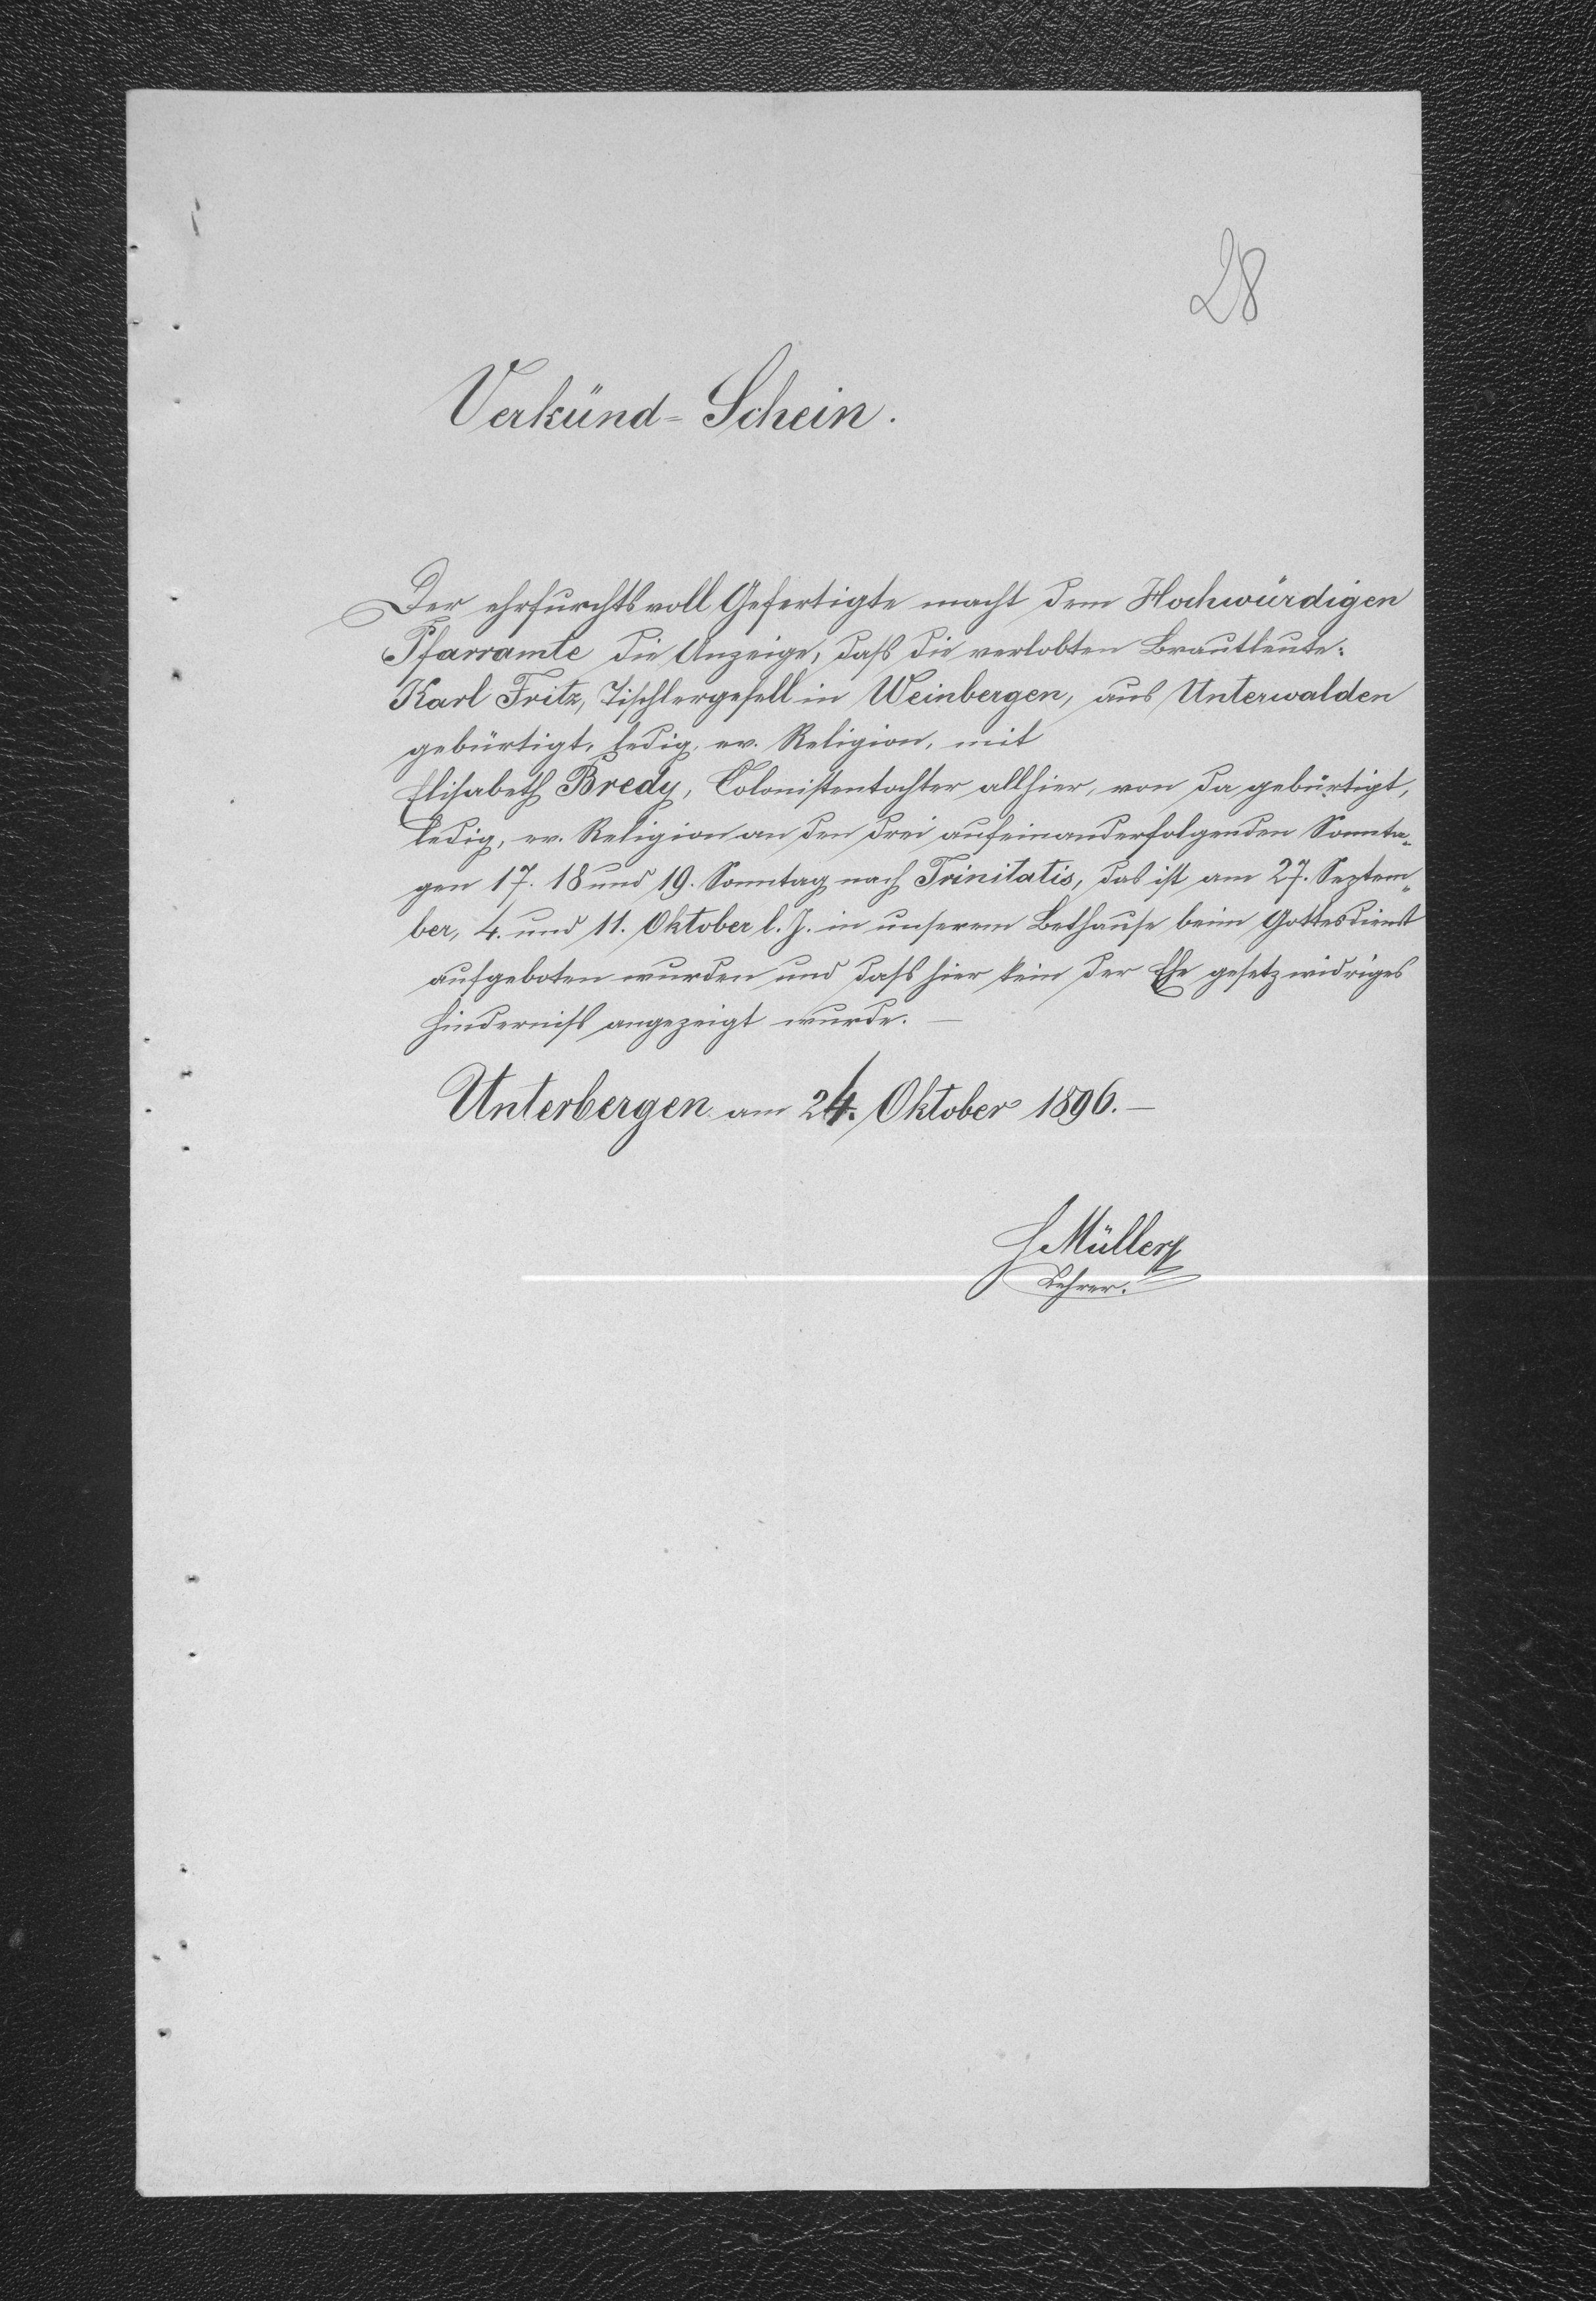 28
Verkünd-Schein.
Der ehrfurchtsvoll Gefertigte macht dem Hochwürdigen
Pfarramte die Anzeige, daß die verlobten Brautleute:
Karl Fritz, Tischlergesell in Weinbergen, aus Unterwalden
gebürtigt, ledig, ev. Religion, mit
Elisabeth Bredy, Colonistentochter allhier, von da gebürtigt,
ledig, ev. Religion an den drei aufeinanderfolgenden Sonnta„
gen 17. 18 und 19. Sonntag nach Trinitatis, das ist am 27. Septem„
ber, 4. und 11. Oktober l. J. in unserem Bethause beim Gottesdienst
aufgeboten wurden und daß hier kein der Ehe gesetzwidriges
Hinderniß angezeigt wurde. —
Unterbergen am 24. Oktober 1896. —
Müller
Lehrer.